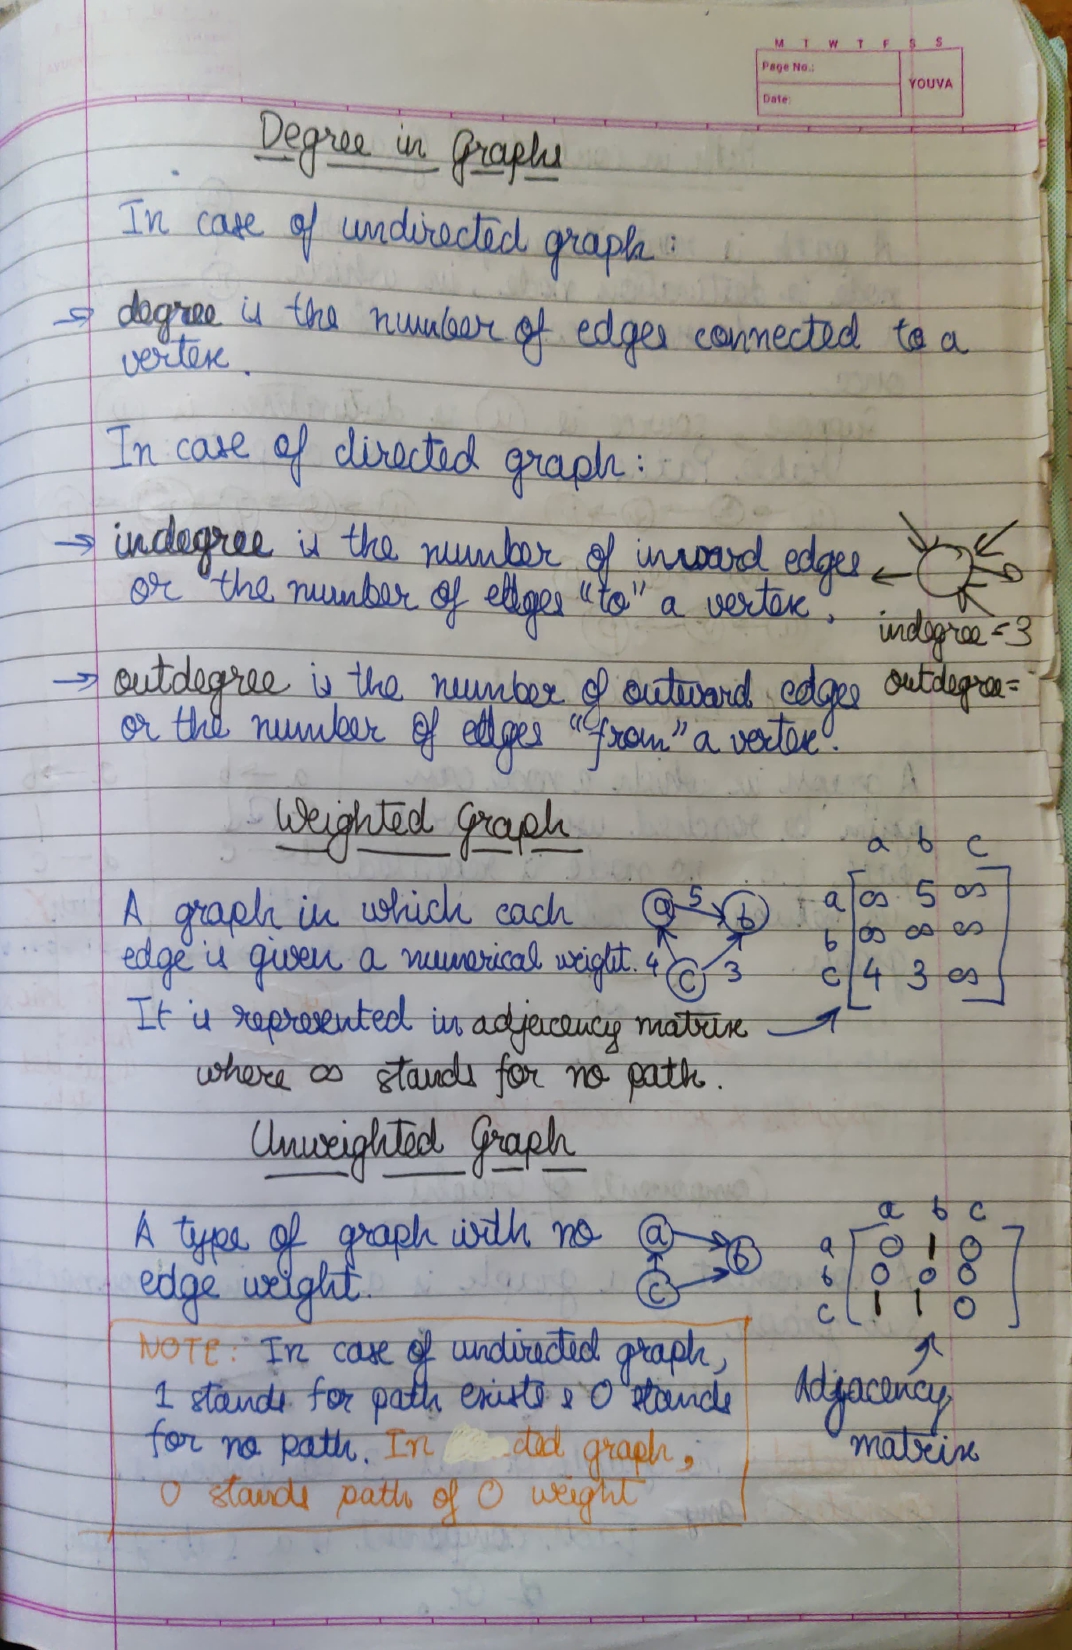 M T W T F S S
Page No.:
YOUVA
Date:
Degree in Graphs
In case of undirected graph:
→ degree is the number of edges connected to a
vertex.
In case of directed graph:
→ indegree is the number of inward edges
or the number of edges "to" a vertex.
indegree = 3
→ outdegree is the number of outward edges
outdegree=
or the number of edges "from" a vertex.
Weighted Graph
A graph in which each
edge is given a numerical weight.
a 5 b
4 c 3
a b c
a ∞ 5 ∞
b ∞ ∞ ∞
c 4 3 ∞
It is represented in adjacency matrix →
where ∞ stands for no path.
Unweighted Graph
A type of graph with no
edge weight.
a b
c
a b c
a 0 1 0
b 0 0 0
c 1 1 0
Adjacency
matrix
NOTE: In case of undirected graph,
1 stands for path exists & 0 stands
for no path. In ted graph,
0 stands path of 0 weight